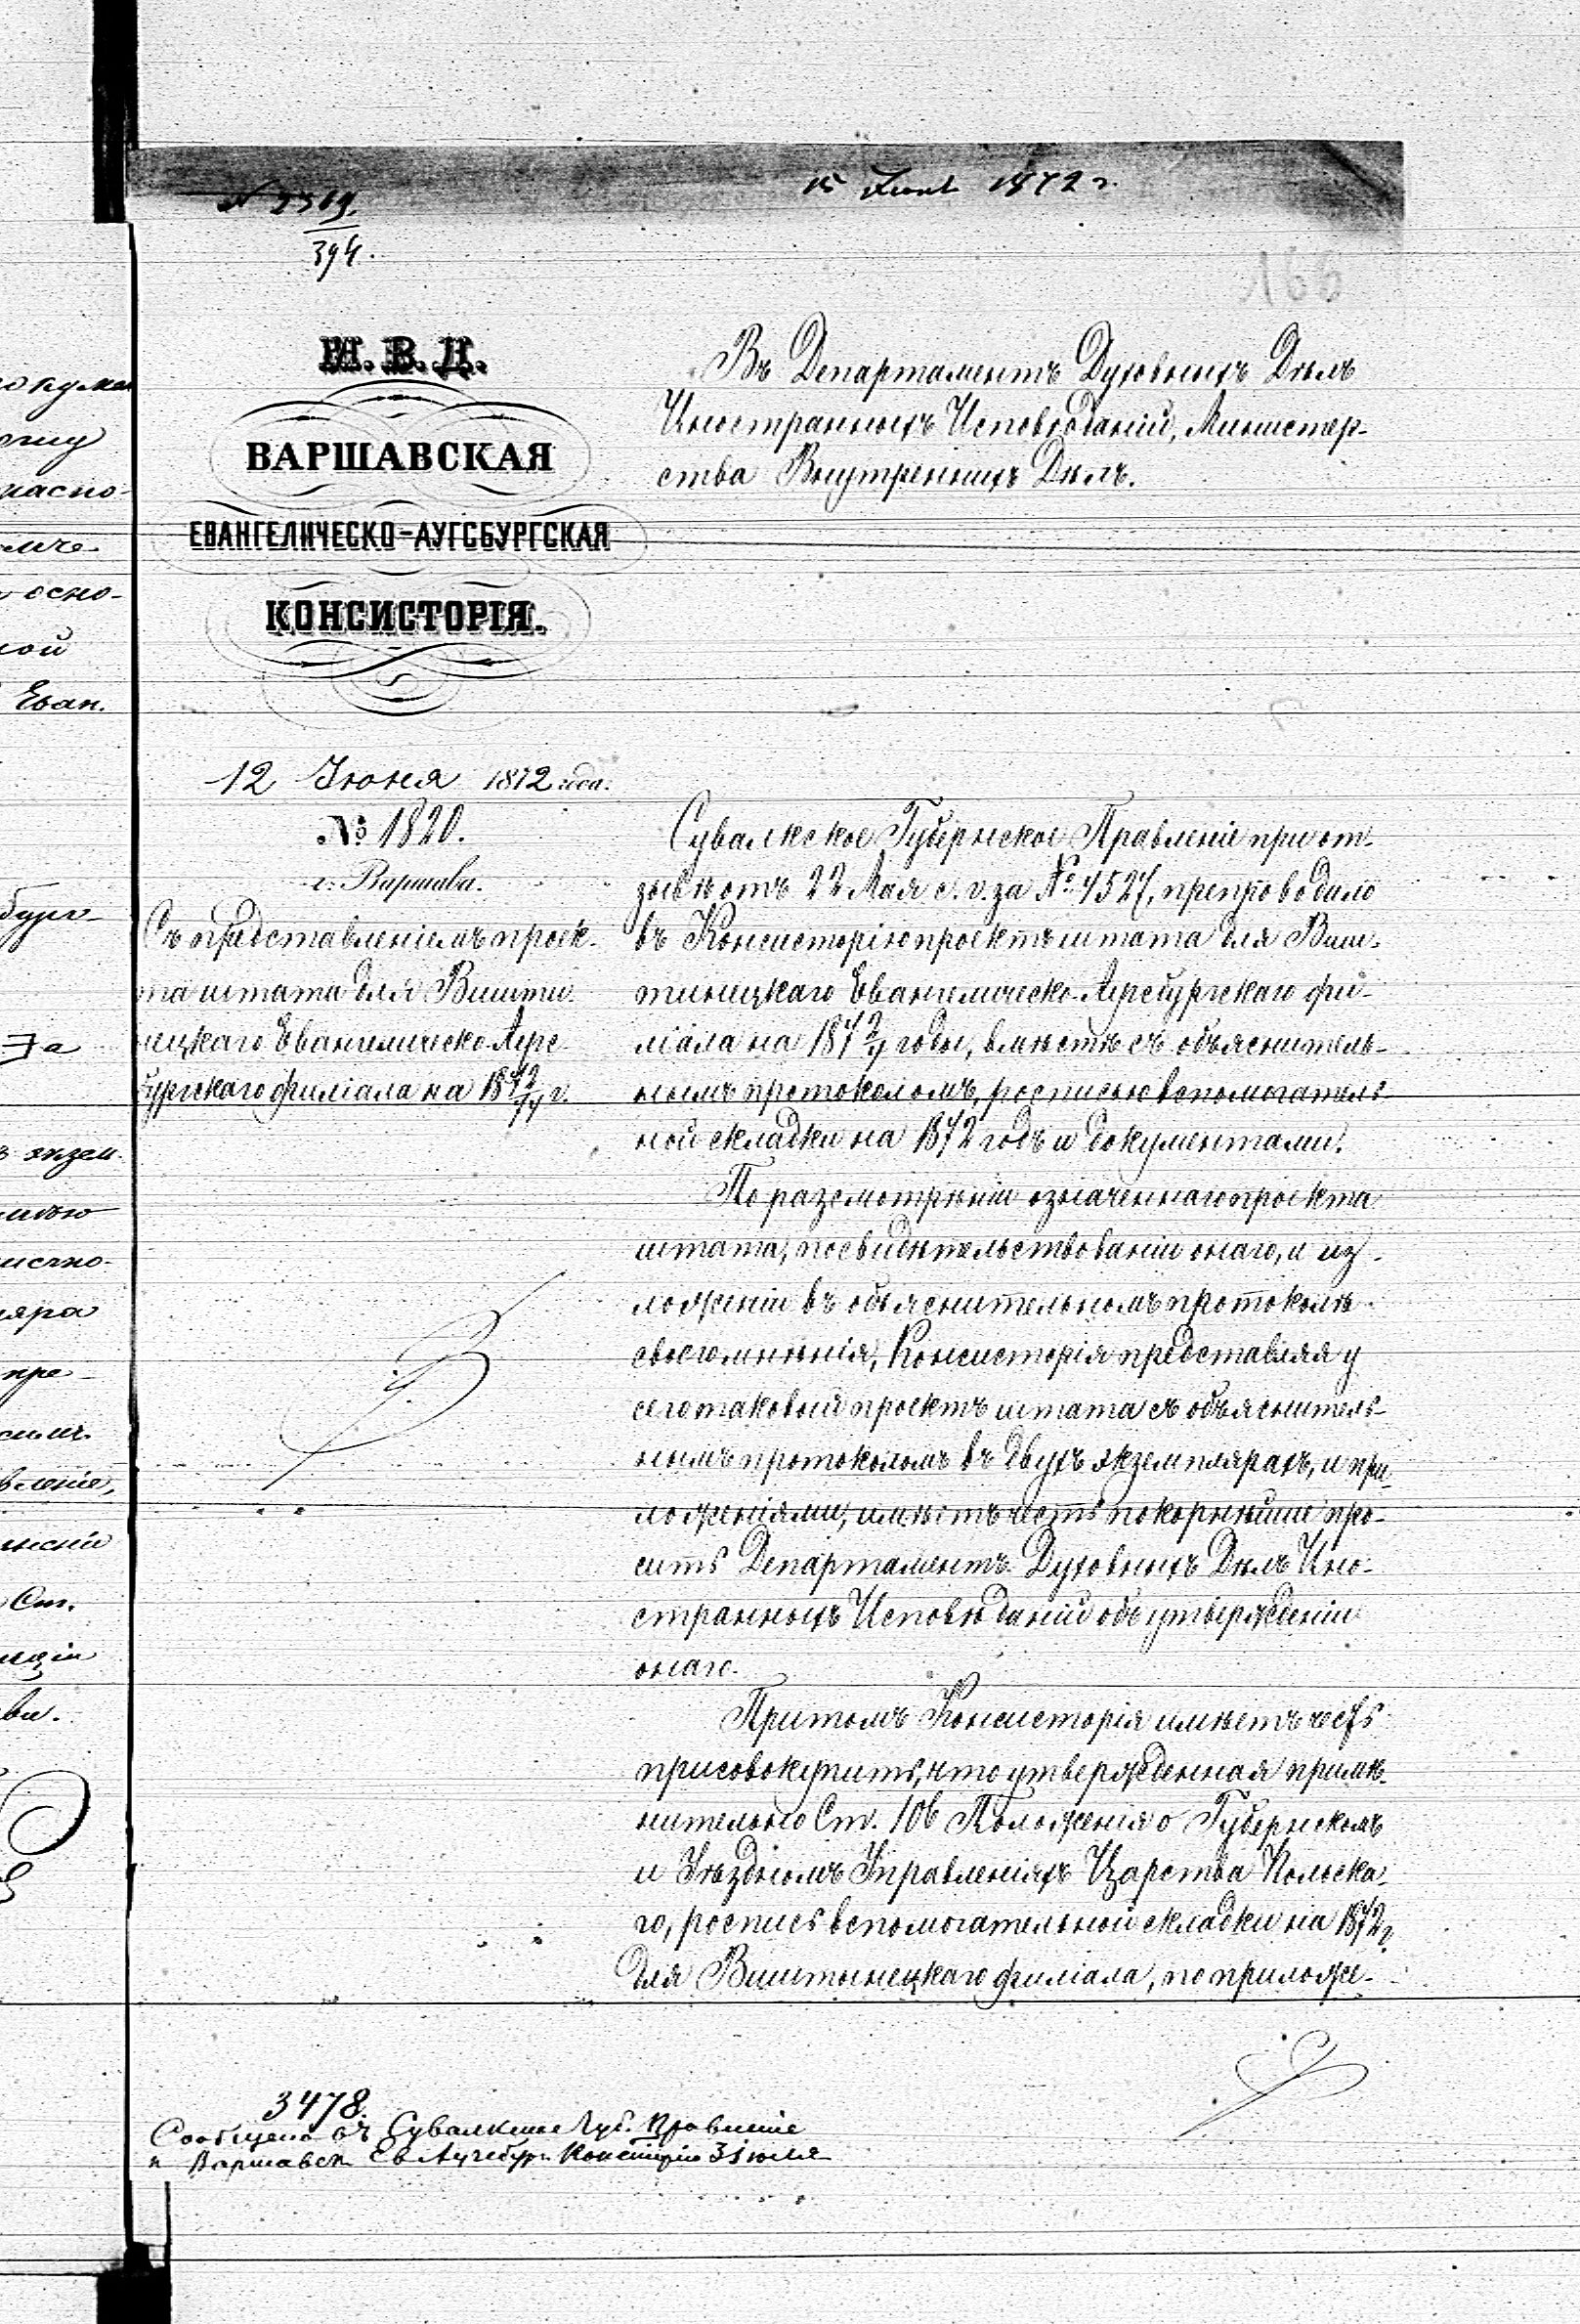 15 Іюня 1872 г.
№ 2519.
394.
166
М. В. Д.
ВАРШАВСКАЯ
ЕВАНГЕЛИЧЕСКО-АУГСБУРГСКАЯ
КОНСИСТОРІЯ.
12 Іюня 1872 года.
№ 1820.
г. Варшава.
Съ представленіемъ проек-
та штата для Вишты-
нецкаго Евангелическо-Аугс-
бургскаго филіала на 1872/74 г.
Въ Департаментъ Духовныхъ Дѣлъ
Иностранныхъ Исповѣданій, Министер-
ства Внутреннихъ Дѣлъ.
Сувалкское Губернское Правленіе при от-
зывѣ отъ 22 Мая с. г. за № 4527, препроводило
въ Консисторію проектъ штата для Виш-
тынецкаго Евангелическо-Аугсбургскаго фи-
ліала на 1872/4 годы, вмѣстѣ съ объяснитель-
нымъ протоколомъ, росписью вспомогатель-
ной складки на 1872 годъ и документами.
По разсмотрѣніи означеннаго проекта
штата, посвидѣтельствованіи онаго, и из-
ложеніи въ объяснительномъ протоколѣ
своего мнѣнія, Консисторія представляя у
сего таковый проектъ штата съ объяснитель-
нымъ протоколомъ въ двухъ экземплярахъ, и при-
ложеніями, имѣетъ честь покорнѣйше про-
сить Департаментъ Духовныхъ Дѣлъ Ино-
странныхъ Исповѣданій объ утвержденіи
онаго.
Притомъ Консисторія имѣетъ честь
присовокупить, что утвержденная примѣ-
нительно Ст. 106 Положенія о Губернскомъ
и Уѣздномъ Управленіяхъ Царства Польска-
го, роспись вспомогательной складки на 1872 г.
для Виштынецкаго филіала, по приложе-
3478.
Сообщено въ Сувалкское Губ. Правленіе
и Варшавск. Ев. Аугсбург. Консисторію 31 юля